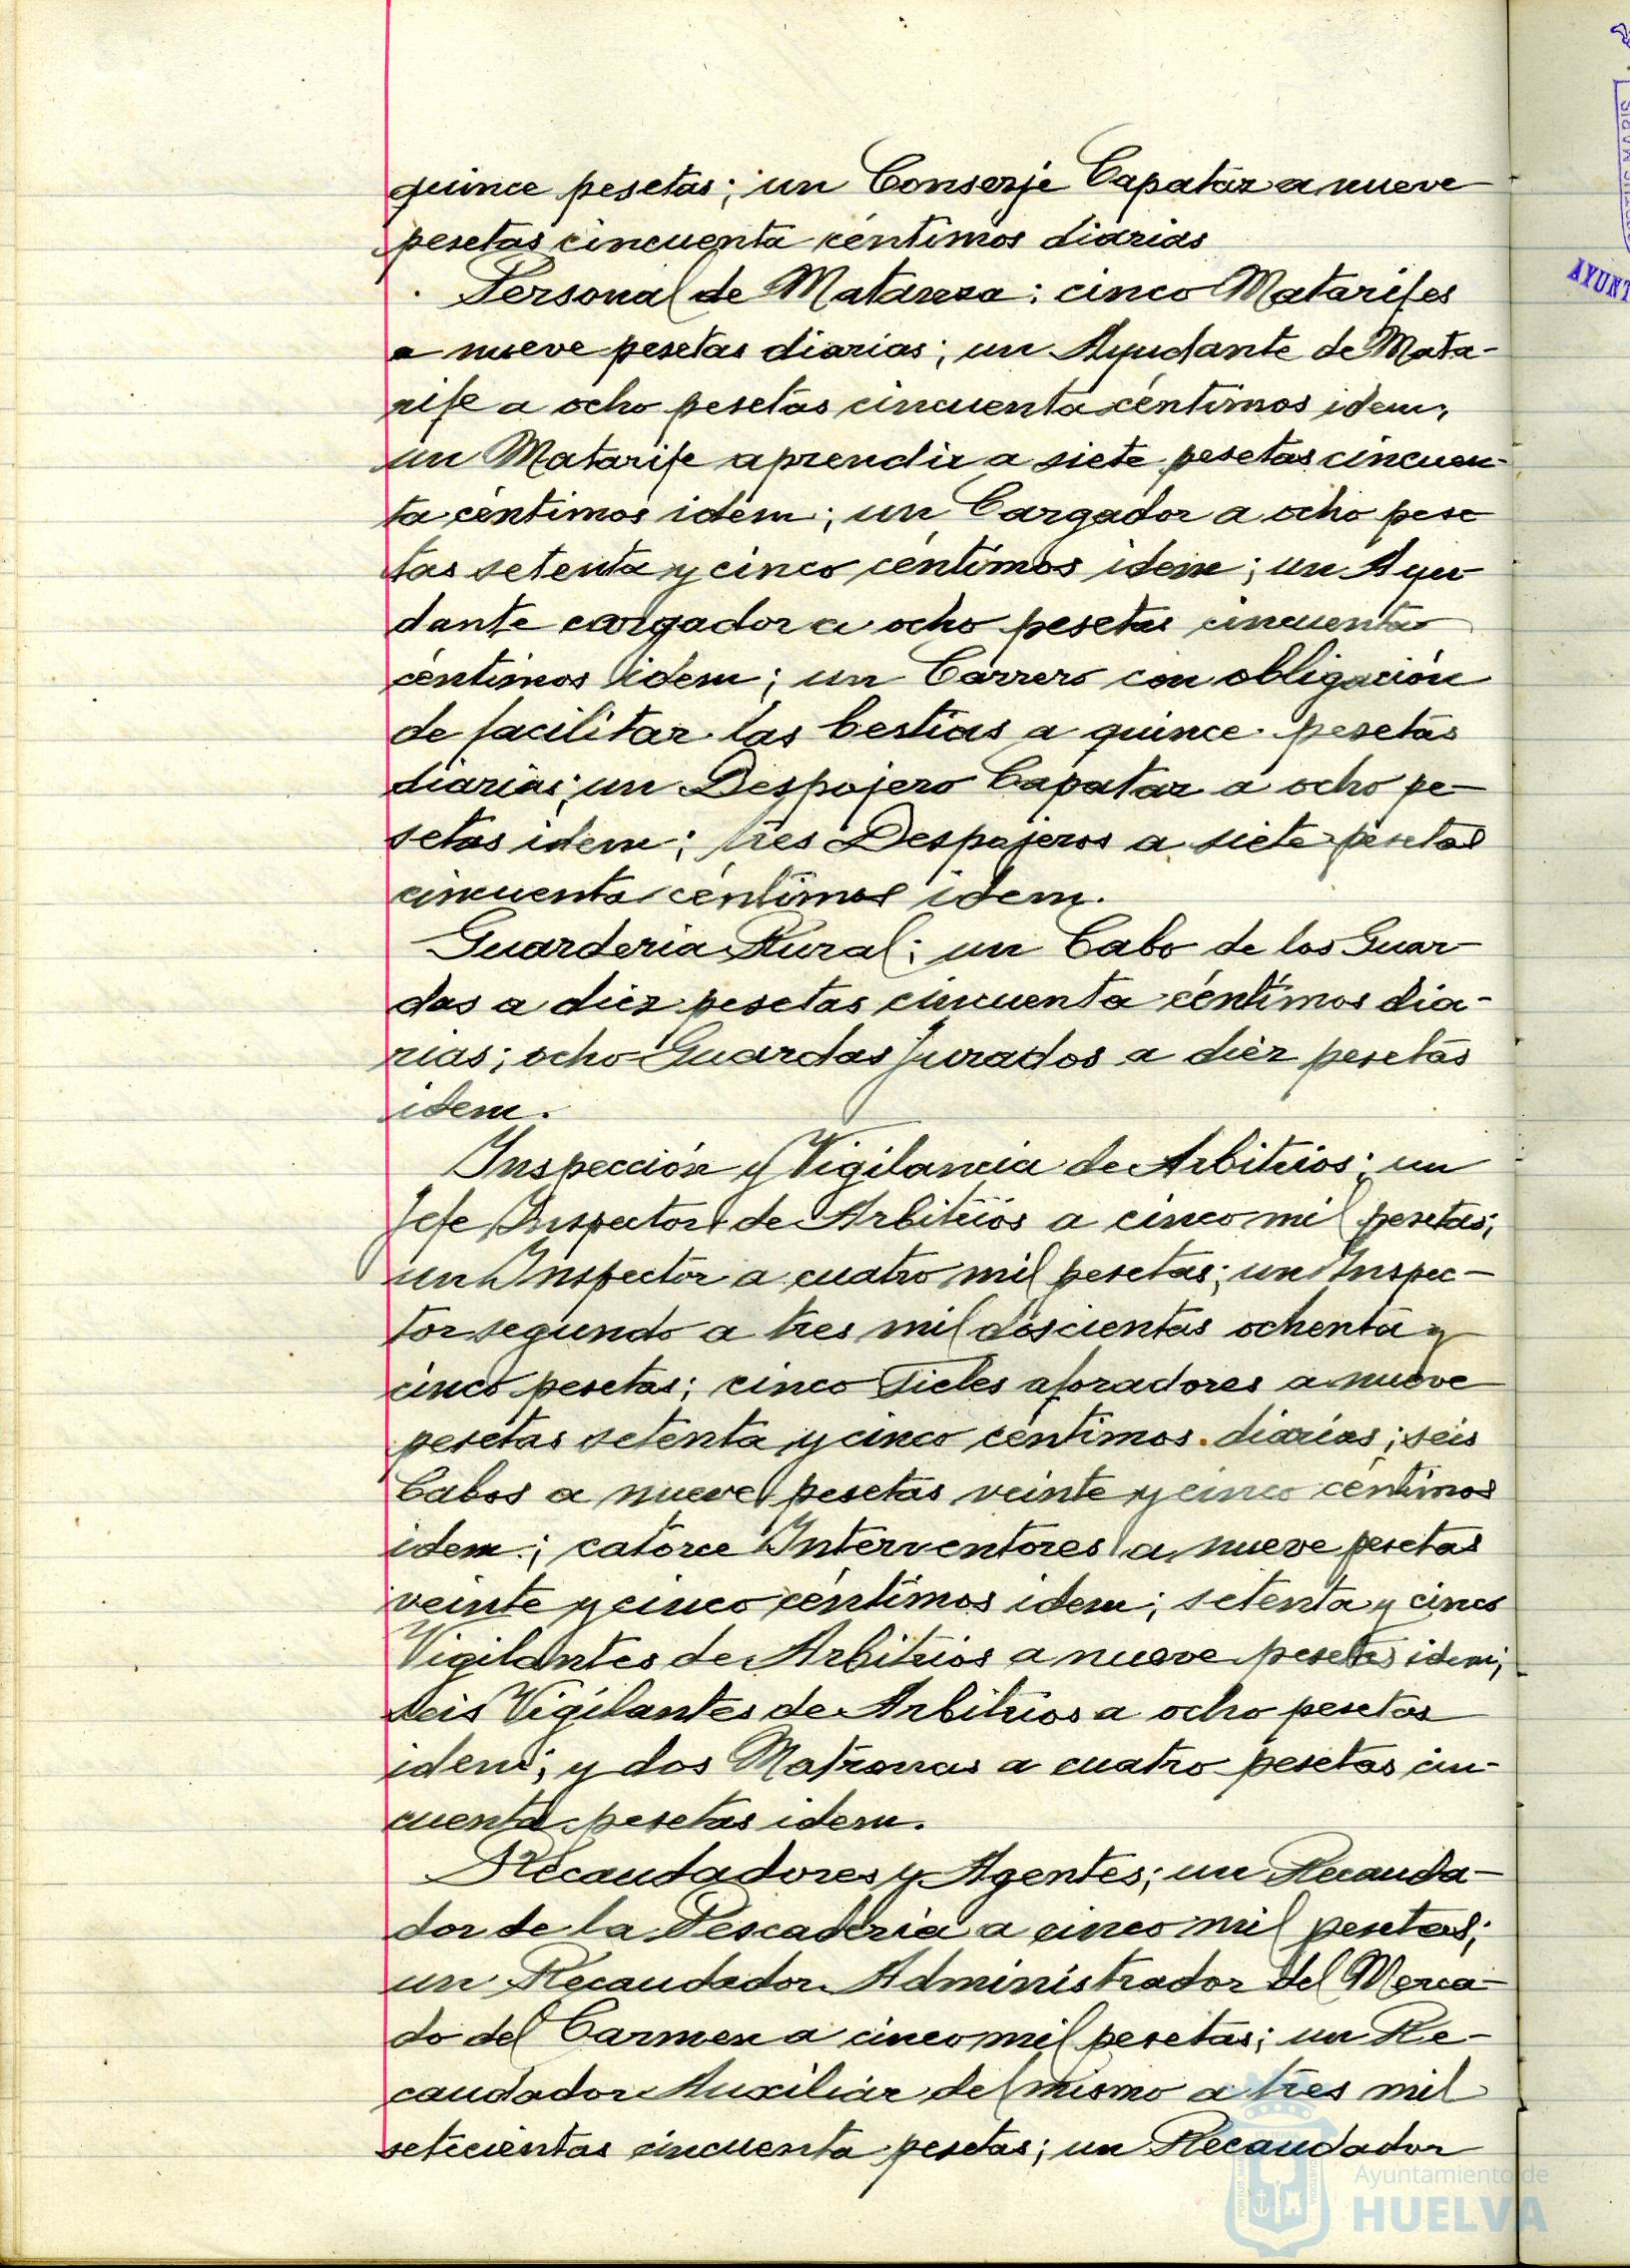 quince pesetas; un Conserje Capataz a nueve
pesetas cincuenta céntimos diarias
Personal de Matanza: cinco Matarifes
a nueve pesetas diarias; un Ayudante de Mata-
rife a ocho pesetas cincuenta céntimos idem;
un Matarife aprendiz a siete pesetas cincuen-
ta céntimos idem; un Cargador a ocho pese
tas setenta y cinco céntimos idem; un Ayu-
dante cargador a ocho pesetas cincuenta
céntimos idem; un Carrero con obligación
de facilitar las bestias a quince pesetas
diarias; un Despojero Capataz a ocho pe-
setas idem; tres Despojeros a siete pesetas
cincuenta céntimos idem.
Guarderia Rural; un Cabo de los Guar-
das a diez pesetas cincuenta céntimos dia-
rias; ocho Guardas Jurados a diez pesetas
idem.
Inspección y Vigilancia de Arbitrios; un
Jefe Inspector de Arbitrios a cinco mil pesetas;
un Inspector a cuatro mil pesetas; un Inspec-
tor segundo a tres mil doscientas ochenta y
cinco pesetas; cinco Fieles aforadores a nueve
pesetas setenta y cinco céntimos diarias; seis
Cabos a nueve pesetas veinte y cinco céntimos
idem; catorce Interventores a nueve pesetas
veinte y cinco céntimos idem; setenta y cinco
Vigilantes de Arbitrios a nueve pesetas idem;
seis Vigilantes de Arbitrios a ocho pesetas
idem; y dos Matronas a cuatro pesetas cin-
cuenta pesetas idem.
Recaudadores y Agentes; un Recauda-
dor de la Pescaderia a cinco mil pesetas;
un Recaudador Administrador del Merca-
do del Carmen a cinco mil pesetas; un Re-
caudador Auxiliar del mismo a tres mil
setecientas cincuenta pesetas; un Recaudador
Ayuntamiento de
HUELVA
AYUNT